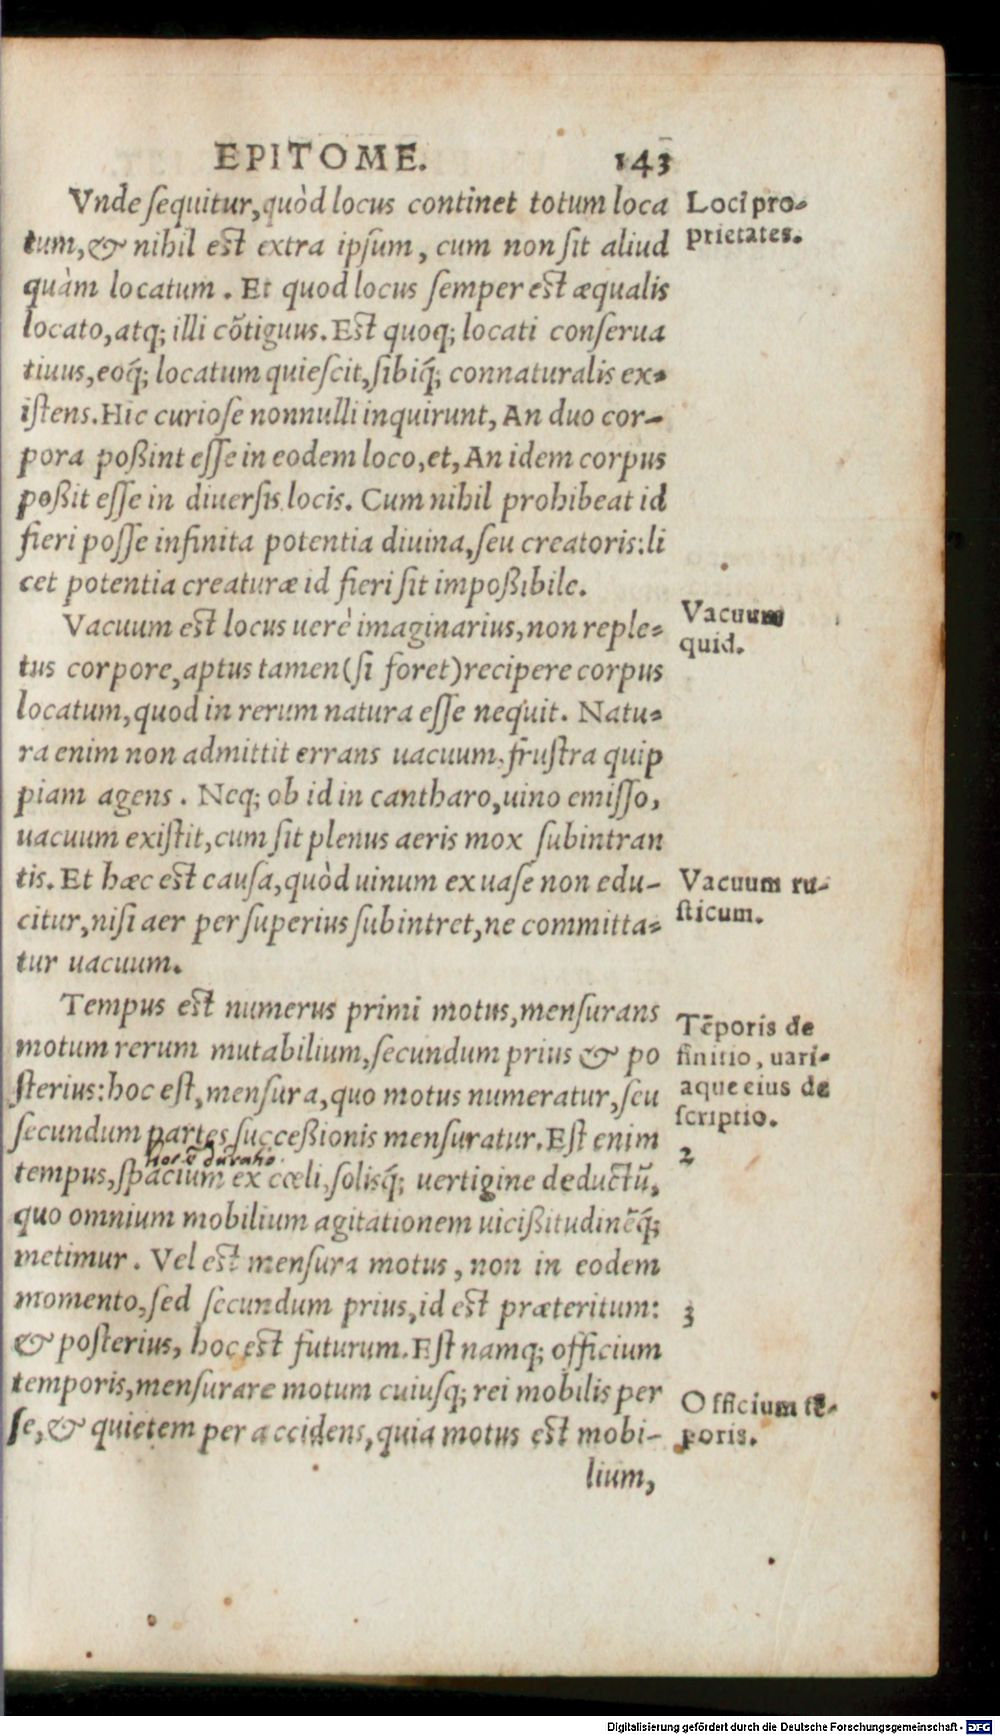 EPITOME. 143
Vnde sequitur, quòd locus continet totum loca
tum, & nihil est extra ipsum, cum non sit aliud
quàm locatum. Et quod locus semper est æqualis
locato, atq; illi cõtiguus. Est quoq; locati conserua
tiuus, eoq́; locatum quiescit, sibiq́; connaturalis ex-
istens. Hic curiose nonnulli inquirunt, An duo cor-
pora poßint esse in eodem loco, et, An idem corpus
poßit esse in diuersis locis. Cum nihil prohibeat id
fieri posse infinita potentia diuina, seu creatoris: li
cet potentia creaturæ id fieri sit impoßibile.
Vacuum est locus uerè imaginarius, non reple-
tus corpore, aptus tamen (si foret) recipere corpus
locatum, quod in rerum natura esse nequit. Natu-
ra enim non admittit errans uacuum, frustra quip
piam agens. Neq; ob id in cantharo, uino emisso,
uacuum existit, cum sit plenus aeris mox subintran
tis. Et hæc est causa, quòd uinum ex uase non edu-
citur, nisi aer per superius subintret, ne committa-
tur uacuum.
Tempus est numerus primi motus, mensurans
motum rerum mutabilium, secundum prius & po
sterius: hoc est, mensura, quo motus numeratur, seu
secundum partes succeßionis mensuratur. Est enim
hoc ē duratio.
tempus, spacium ex cœli, solisq́; uertigine deductũ,
quo omnium mobilium agitationem uicißitudinẽq́;
metimur. Vel est mensura motus, non in eodem
momento, sed secundum prius, id est præteritum:
& posterius, hoc est futurum. Est namq; officium
temporis, mensurare motum cuiusq; rei mobilis per
se, & quietem per accidens, quia motus est mobi-
lium,
Loci pro-
prietates.
Vacuum
quid.
Vacuum ru-
sticum.
Tẽporis de
finitio, uari-
aque eius de
scriptio.
2
3
Officium tẽ-
poris.
Digitalisierung gefördert durch die Deutsche Forschungsgemeinschaft - DFG